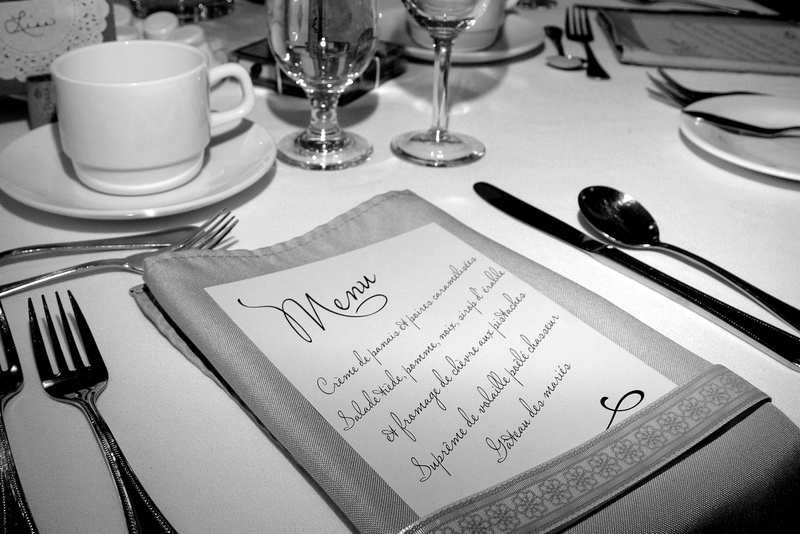 Lisa
Menu
Crème de panais et poires caramelisées
Salade tiède, pomme, noix, sirop d'érable
et fromage de chèvre aux pistaches
Suprême de volaille poêlé chasseur
Gâteau des mariés